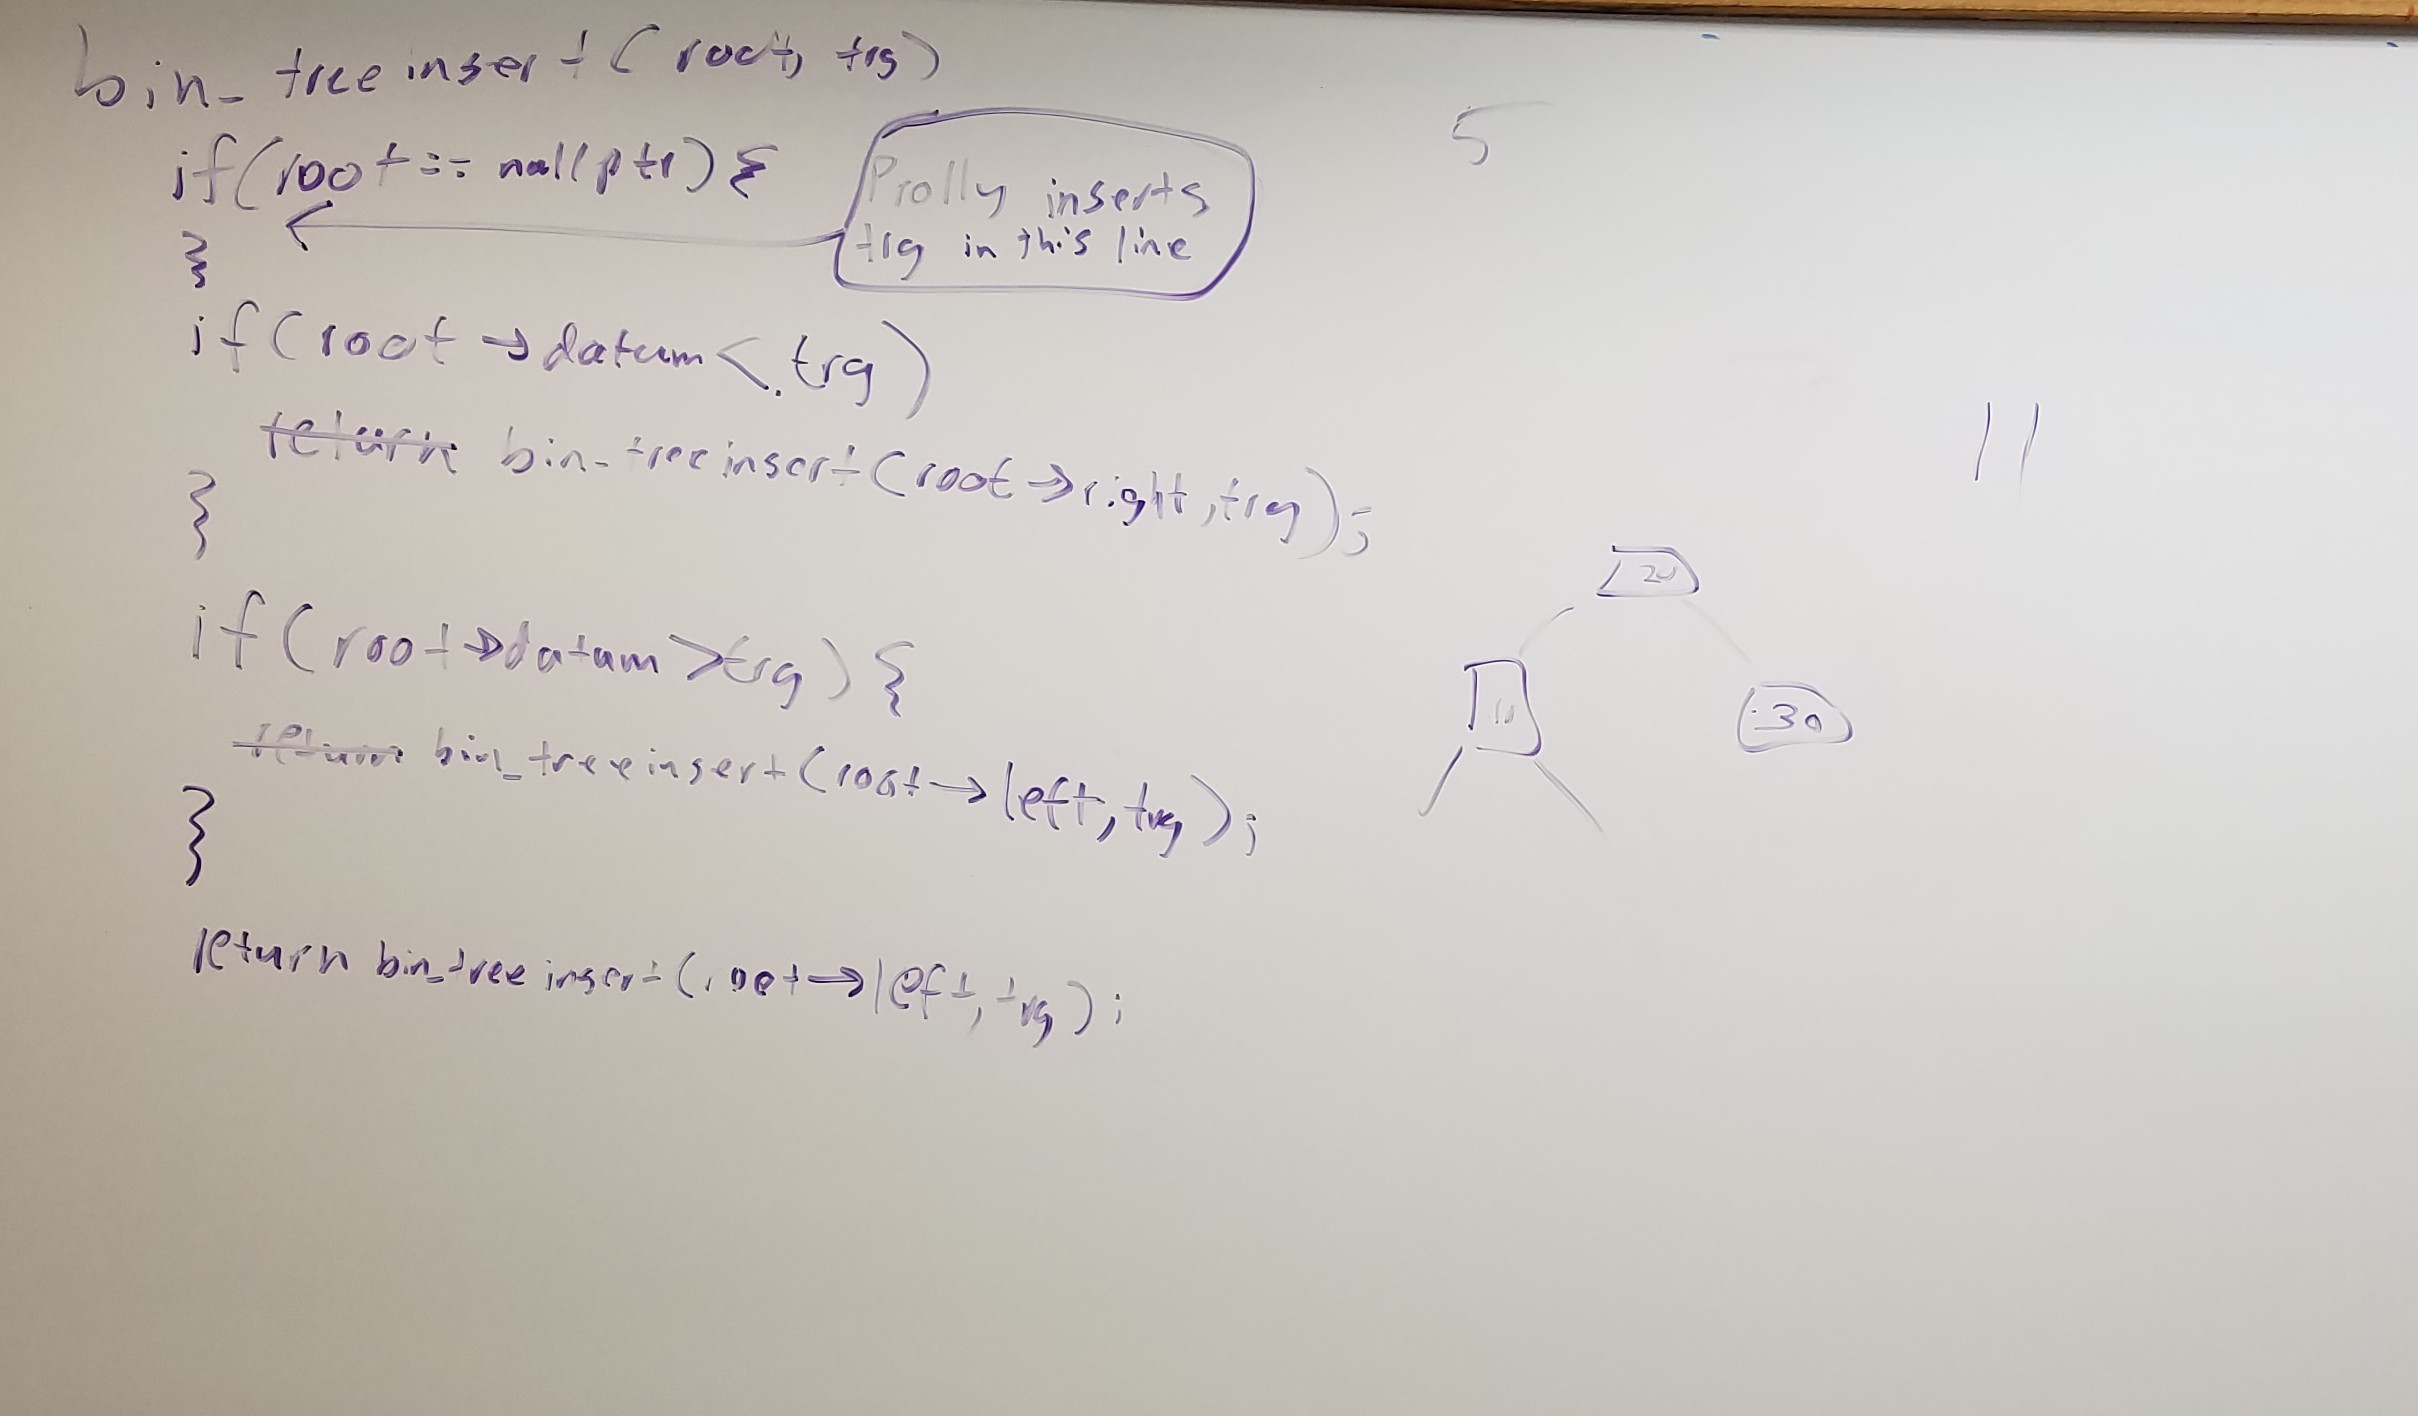 bin_treeinsert(root, trg)
if(root == nullptr){
Prolly inserts
trg in this line
}
if(root→datum<.trg)
return bin_treeinsert(root→right,trg);
}
if(root→datum>trg){
return bin_treeinsert(root→left,trg);
}
return bin_treeinsert(root→left,trg);
5
11
20
10
30